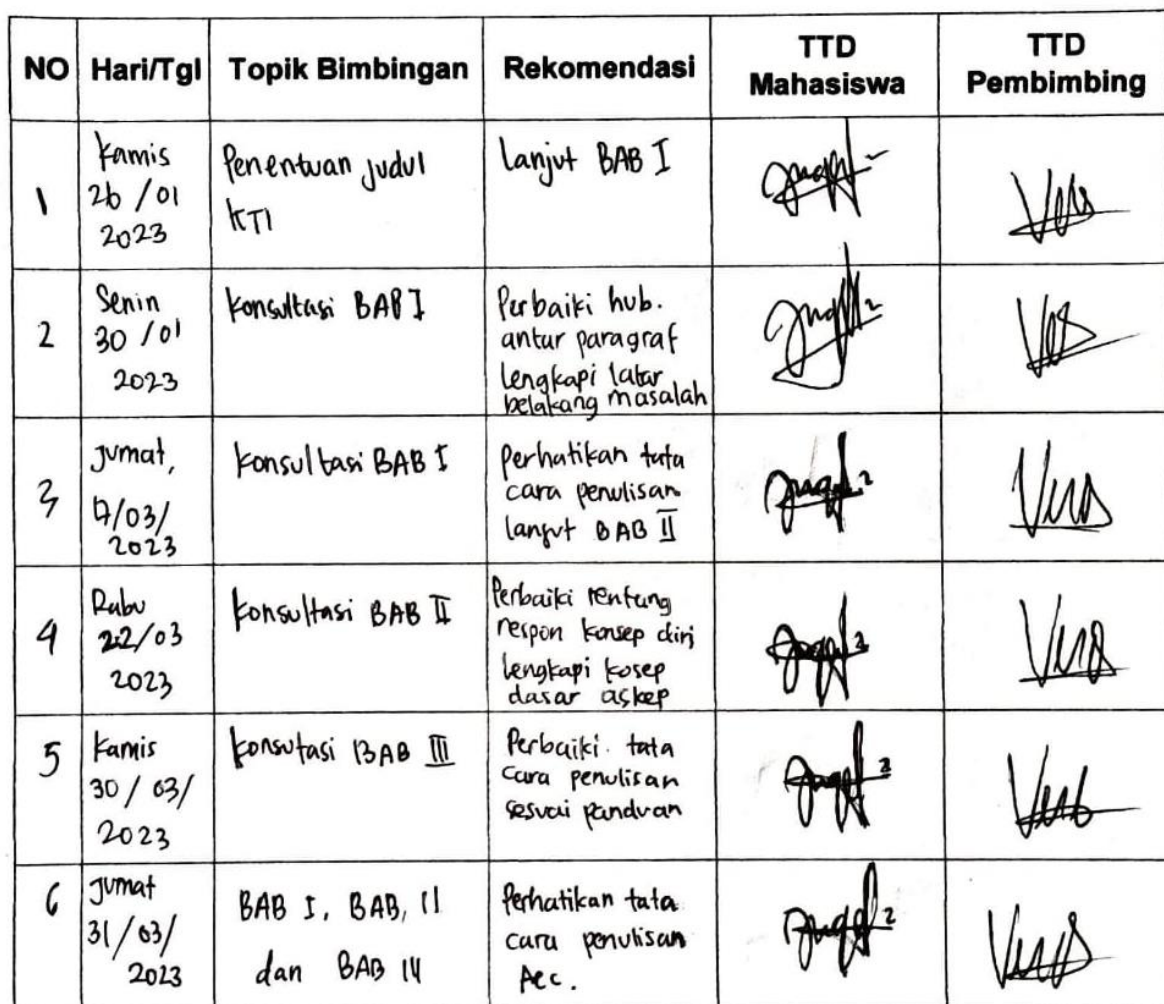 NO Hari/Tgl Topik Bimbingan Rekomendasi TTD Mahasiswa TTD Pembimbing
1
Kamis
26 /01
2023
Penentuan judul
KTI
Lanjut BAB I
2
Senin
30 /01
2023
Konsultasi BAB I
Perbaiki hub.
antar paragraf
lengkapi latar
belakang masalah
3
Jumat,
17/03/
2023
Konsultasi BAB I
Perhatikan tata
cara penulisan
lanjut BAB II
4
Rabu
22/03
2023
Konsultasi BAB II
Perbaiki rentang
respon konsep diri
lengkapi kosep
dasar askep
5
Kamis
30/03/
2023
Konsutasi BAB III
Perbaiki tata
cara penulisan
sesuai panduan
6
Jumat
31/03/
2023
BAB I, BAB, II
dan BAB IV
Perhatikan tata
cara penulisan
Acc.